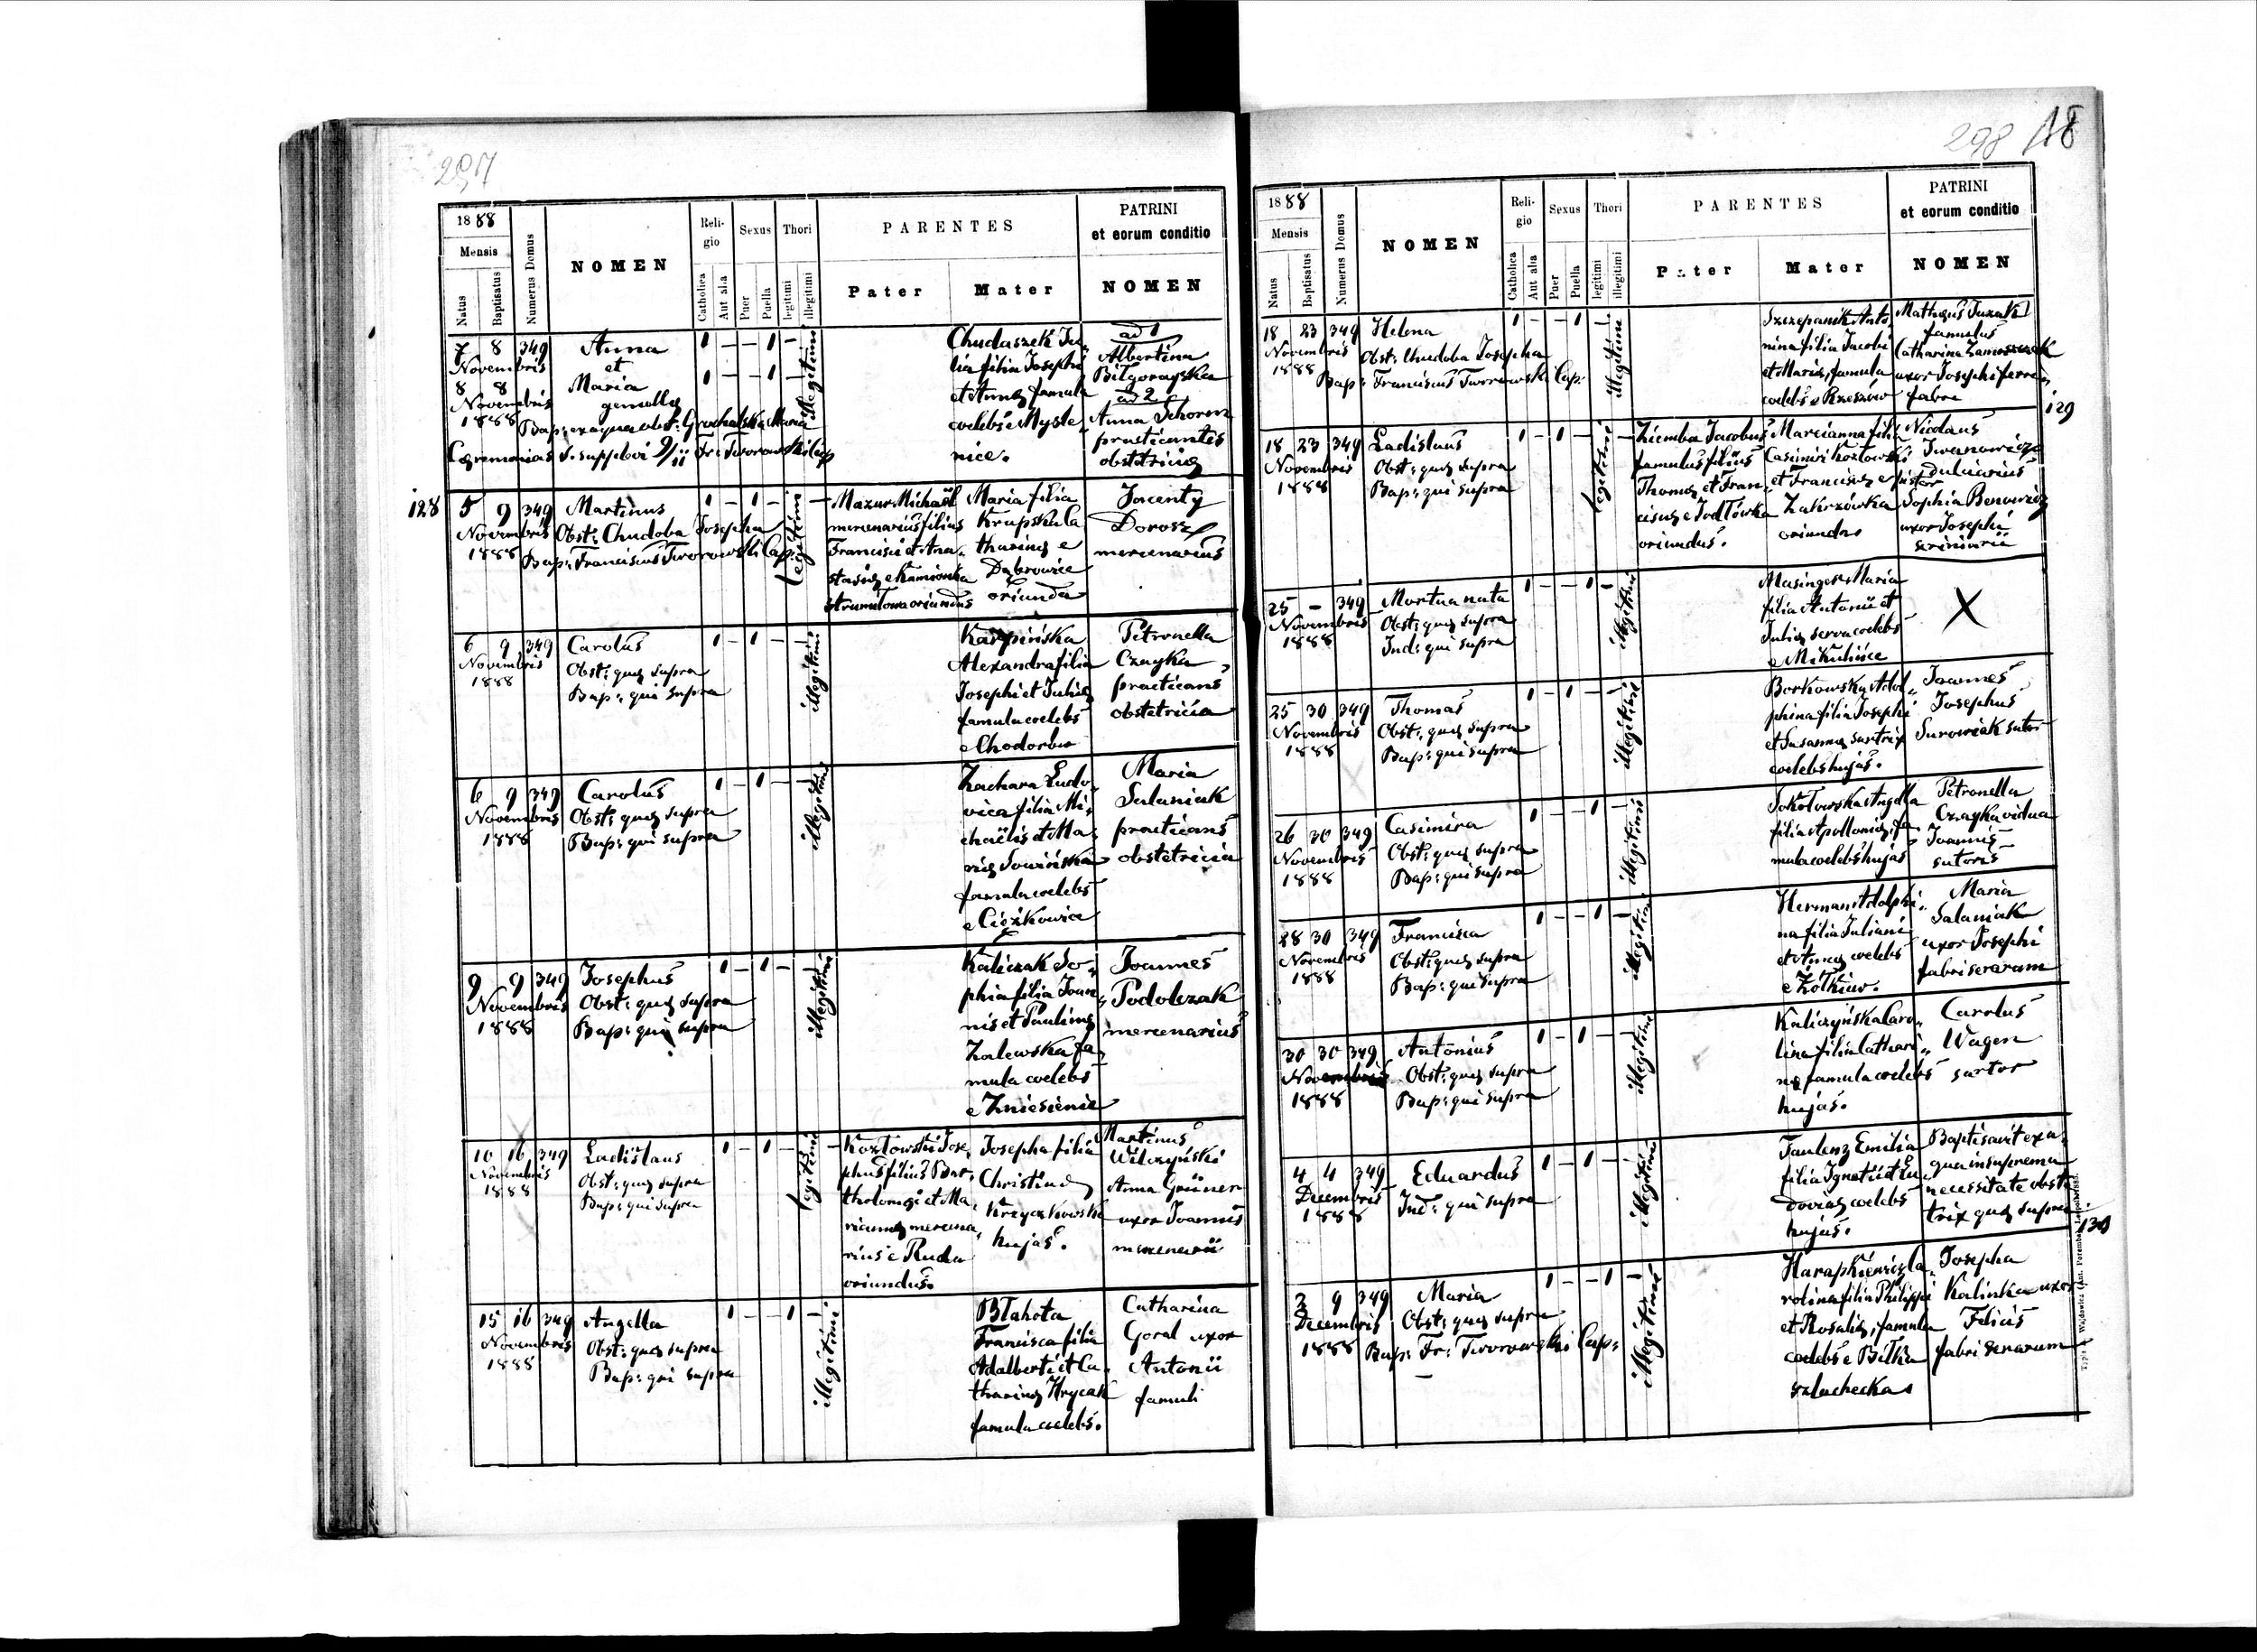 297
1888
Mensis
Natus
Baptisatus
Numerus Domus
NOMEN
Religio
Catholica
Aut alia
Sexus
Puer
Puella
Thori
legitimi
illegitimi
PARENTES
Pater
Mater
PATRINI
et eorum conditio
NOMEN
7 8 349
Novembris
8 8
Novembris
1888
Anna
et
Maria
gemellae
Bap: ex aqua obst: Grochalska Maria
Ceremonias S. supplevi 9/11 Fr: Tworowski Cap
1 – – 1 –
1 – – 1 –
illegitimi
Chudaszek Ju-
lia filia Josephi
et Annae famula
coelebs e Myste-
nice.
ad 1
Albertina
Biłgorayska
ad 2
Anna Schorm
practicantes
obstetriciae
128
5 9 349
Novembris
1888
Martinus
Obst: Chudoba Josepha
Bap: Franciscus Tworowski Cap:
1 – 1 – –
legitimi
Mazur Michaël
mercenarius filius
Francisci et Ana-
stasiae e Kamionka
strumiłowa oriundus
Maria filia
Krupska Ca
tharinae e
Dąbrowice
oriunda
Jacenty
Dorosz
mercenarius
6 9 349
Novembris
1888
Carolus
Obst: quae supra
Bap: qui supra
1 – 1 – –
illegitimi
Karpińska
Alexandra filia
Josephi et Juliae
famula coelebs
e Chodorów
Petronella
Czayka
practicans
obstetricia
6 9 349
Novembris
1888
Carolus
Obst: quae supra
Bap: qui supra
1 – 1 – –
illegitimi
Zachara Ludo-
vica filia Mi-
chaëlis et Ma-
riae Sowińska
famula coelebs
e Ciężkowice
Maria
Salaniak
practicans
obstetricia
9 9 349
Novembris
1888
Josephus
Obst: quae supra
Bap: qui supra
1 – 1 –
illegitimi
Kaliczak So-
phia filia Joan-
nis et Paulinae
Zalewska fa-
mula coelebs
e Zniesienie
Joannes
Podolczak
mercenarius
10 16 349
Novembris
1888
Ladislaus
Obst: quae supra
Bap: qui supra
1 – 1 – –
legitimi
Kozłowski Jose-
phus filius Bar-
tholomaei et Ma-
riannae mercena-
rius e Ruda
oriundus.
Josepha filia
Christinae
Krzyczkowska
hujas.
Martinus
Wilczyński
Anna Grüner
uxor Joannis
mercenarii
15 16 349
Novembris
1888
Angella
Obst: quae supra
Bap: qui supra
1 – – 1 –
illegitimi
Błahota
Francisca filia
Adalberti et Ca-
tharinae Hrycak
famula coelebs.
Catharina
Goral uxor
Antonii
famuli
298
1888
Mensis
Natus
Baptisatus
Numerus Domus
NOMEN
Religio
Catholica
Aut alia
Sexus
Puer
Puella
Thori
legitimi
illegitimi
PARENTES
Pater
Mater
PATRINI
et eorum conditio
NOMEN
18 23 349
Novembris
1888
Helena
Obst: Chudoba Josepha
Bap: Franciscus Tworowski Cap:
1 – – 1 –
illegitimi
Szczepanik Anto-
nina filia Jacobi
et Mariae, famula
coelebs e Rzeszów
Mathaeus
famulus
Catharina
uxor Josephi ferri
fabri
129
18 23 349
Novembris
1888
Ladislaus
Obst: quae supra
Bap: qui supra
1 – 1 – –
legitimi
Ziemba Jacobus
famulus filius
Thomae et Fran-
ciscae e Jodłówka
oriundus.
Marcianna filia
Casimiri Kozłowski
et Franciscae e
Zakrzówka
oriunda
Nicolaus
Iwanowicz
dulciarius
pistor
Sophia
uxor Josephi
scriniarii
25 – 349
Novembris
1888
Mortua nata
Obst: quae supra
Ind: qui supra
1 – – 1 –
illegitimi
Maria
filia Antonii et
Juliae serva coelebs
e Mikulińce
X
25 30 349
Novembris
1888
Thomas
Obst: quae supra
Bap: qui supra
1 – 1 – –
illegitimi
Borkowska Adol-
phina filia Josephi
et Susannae sartrix
coelebs hujas.
Joannes
Josephus
Surowiak sutor
26 30 349
Novembris
1888
Casimira
Obst: quae supra
Bap: qui supra
1 – – 1 –
illegitimi
Sokołowska Angella
filia Apolloniae, fa-
mula coelebs hujas
Petronella
Czayka vidua
Joannis
sutoris
28 30 349
Novembris
1888
Francisca
Obst: quae supra
Bap: qui supra
1 – – 1 –
illegitimi
Herman Adolphi-
na filia Juliani
et Annae coelebs
e Żółkiew.
Maria
Salaniak
uxor Josephi
fabri serarum
30 30 349
Novembris
1888
Antonius
Obst: quae supra
Bap: qui supra
1 – 1 – –
illegitimi
Kaliczyńska Caro-
lina filia Cathari-
nae famula coelebs
hujas.
Carolus
Wagen
sartor
4 4 349
Decembris
1888
Eduardus
Ind: qui supra
1 – 1 – –
illegitimi
Emilia
filia Ignatii et Lu-
dovicae coelebs
hujas.
Baptisavit ex a-
qua in suprema
necessitate obste
trix quae supra
130
3 9 349
Decembris
1888
Maria
Obst: quae supra
Bap: Fr: Tworowski Cap:
1 – – 1 –
illegitimi
Harapkiewicz Ca-
rolina filia Philippi
et Rosaliae, famula
coelebs e Biłka
szlachecka
Josepha
Kalinka uxor
Felicis
fabri serarum